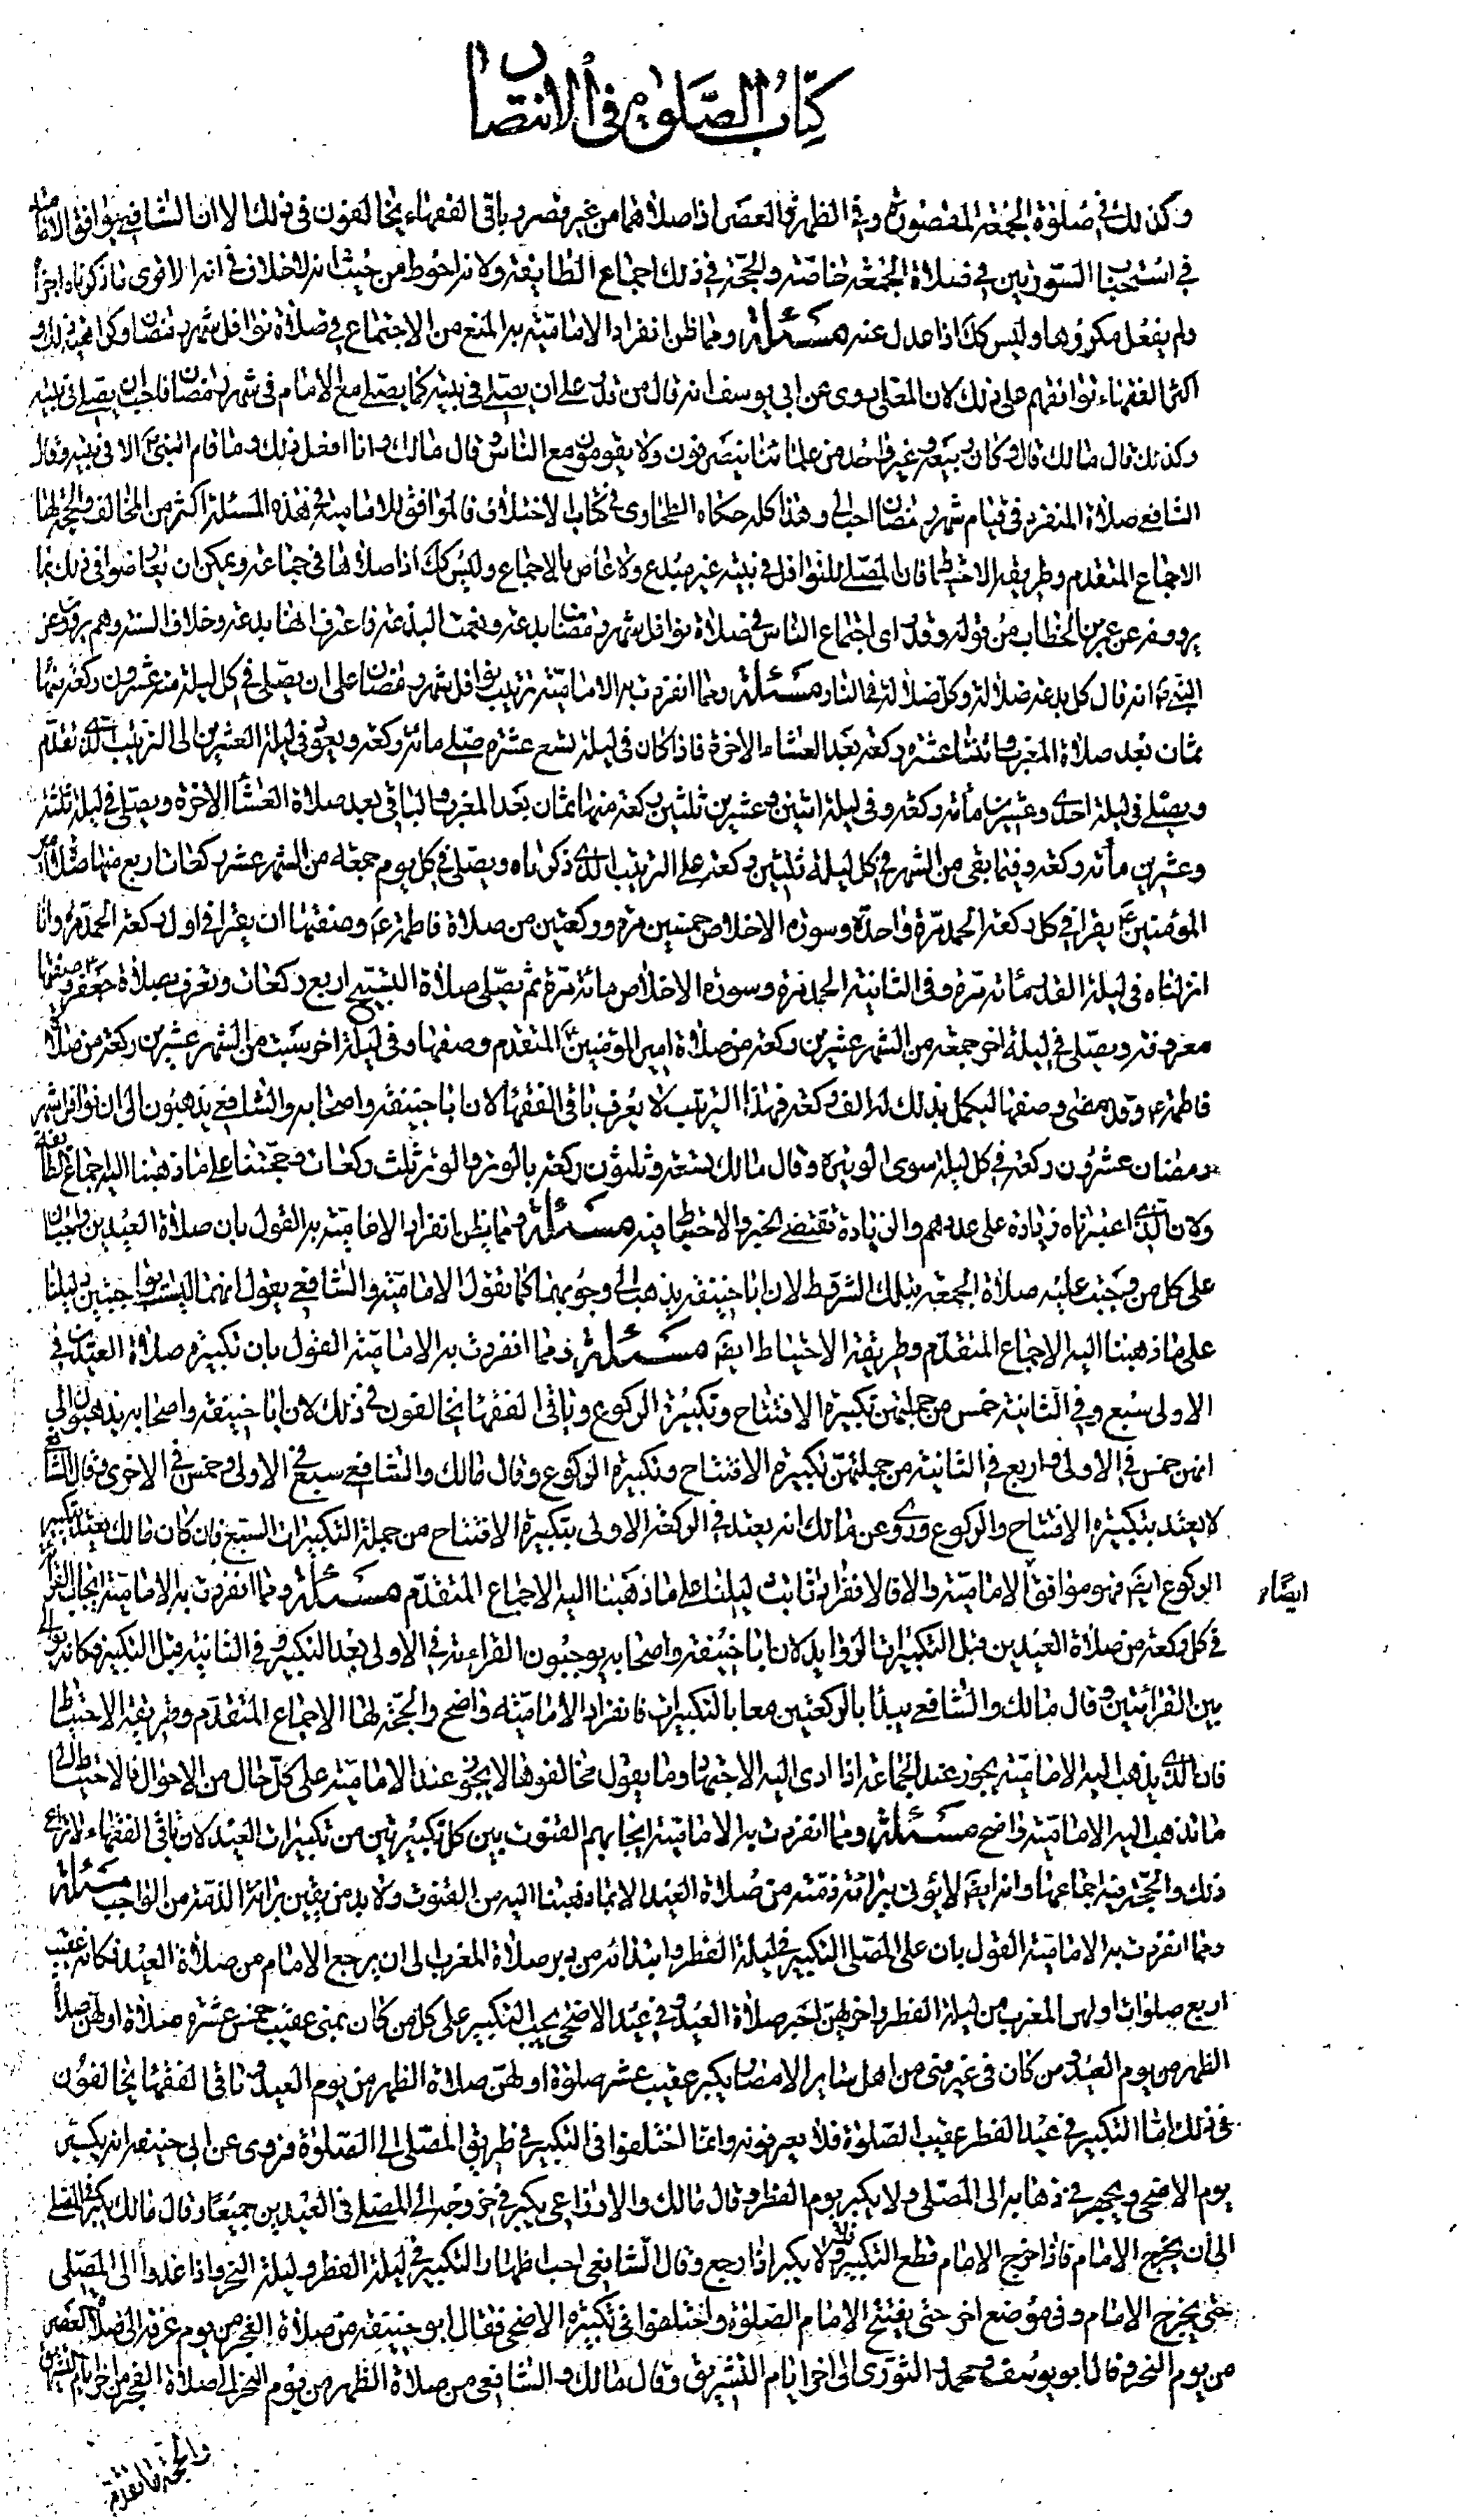 كتاب الصلوة من الانتصار
وكذلك في صلوة الجمعة المقصورة وفي الظهر والعصر اذا صلاهما من غير قصر وباقي الفقهاء يخالفون في ذلك الا ان الشافعي يوافق الامامية
في استحباب السورتين في صلاة الجمعة خاصة والحجة في ذلك اجماع الطايفة ولانه احوط من حيث انه لا خلاف في انه اذا قرء ما ذكرناه اجزأ
ولم يفعل مكروها وليس كك اذا عدل عنه مسئلة ومما ظن انفراد الامامية به المنع من الاجتماع في صلاة نوافل شهر رمضان وكراهية ذلك و
اكثر الفقهاء يوافقهم على ذلك لان المعلى روى عن ابي يوسف انه قال من قدر على ان يصلي في بيته كما يصلي مع الامام في شهر رمضان فاحب الي ان يصلي في بيته
وكذلك قال مالك قال وكان ربيعة وغير واحد من علمائنا ينصرفون ولا يقومون مع الناس قال مالك وانا افعل ذلك وما قام النبي ص الا في بيته وقال
الشافعي صلاة المنفرد في قيام شهر رمضان احب الي وهذا كله حكاه الطحاوي في كتاب الاختلاف فالموافق للامامية في هذه المسئلة اكثر من المخالف والحجة لها
الاجماع المتقدم وطريقة الاحتياط فان المصلي للنوافل في بيته غير مبدع ولا عاص بالاجماع وليس كك اذا صلاها في جماعة ويمكن ان يعارضوا في ذلك بما
يروونه عن عمر بن الخطاب من قوله وقد رأى اجتماع الناس في صلاة نوافل شهر رمضان بدعة ونعمت البدعة فاعترف انها بدعة وخلاف السنة وهم يروون عن
النبي ص انه قال كل بدعة ضلالة وكل ضلالة في النار مسئلة ومما انفردت به الامامية ترتيب نوافل شهر رمضان على ان يصلي في كل ليلة منه عشرون ركعة منها
ثمان بعد صلاة المغرب واثنتا عشرة ركعة بعد العشاء الاخرة فاذا كان في ليلة تسع عشرة صلى مائة ركعة ويعود في ليلة العشرين الى الترتيب الذي تقدم
ويصلي في ليلة احدى وعشرين مائة ركعة وفي ليلة اثنين وعشرين ثلثين ركعة منها ثمان بعد المغرب والباقي بعد صلاة العشاء الاخرة ويصلي في ليلة ثلثة
وعشرين مائة ركعة وفيما بقي من الشهر في كل ليلة ثلثين ركعة على الترتيب الذي ذكرناه ويصلي في كل يوم جمعة من الشهر عشر ركعات اربع منها صلاة امير
المؤمنين ع يقرا في كل ركعة الحمد مرة واحدة وسورة الاخلاص خمسين مرة وركعتين من صلاة فاطمة ع وصفتها ان يقرا في اول ركعة الحمد مرة وانا
انزلناه في ليلة القدر مائة مرة وفي الثانية الحمد مرة وسورة الاخلاص مائة مرة ثم يصلي صلاة التسبيح اربع ركعات وتعرف بصلاة جعفر ع وصفتها
معروفة ويصلي في ليلة اخر جمعة من الشهر عشرين ركعة من صلاة امير المؤمنين ع المتقدم وصفها وفي ليلة اخر سبت من الشهر عشرين ركعة من صلاة
فاطمة ع وقد مضى وصفها ليكمل بذلك له الف ركعة فهذا الترتيب لا يعرف باقي الفقهاء لان ابا حنيفة واصحابه والشافعي يذهبون الى ان نوافل شهر
رمضان عشرون ركعة في كل ليلة سوى الوتيرة وقال مالك تسعة وثلثون ركعة بالوتر والوتر ثلث ركعات وحجتنا على ما ذهبنا اليه اجماع الطايفة
ولان الذي اعتبرناه زيادة على عددهم والزيادة تقتضي الخير والاحتياط فيه مسئلة ومما يظن انفراد الامامية به القول بان صلاة العيدين واجبتان
على كل من وجبت عليه صلاة الجمعة بتلك الشروط لان ابا حنيفة يذهب الى وجوبهما كما تقول الامامية والشافعي يقول انهما ليستا بواجبتين دليلنا
على ما ذهبنا اليه الاجماع المتقدم وطريقة الاحتياط ايضم مسئلة ومما انفردت به الامامية القول بان تكبيرة صلاة العيدين في
الاولى سبع وفي الثانية خمس من جملتهن تكبيرة الافتتاح وتكبيرة الركوع وباقي الفقهاء يخالفون في ذلك لان ابا حنيفة واصحابه يذهبون الى
انهن خمس في الاولى واربع في الثانية من جملتهن تكبيرة الافتتاح وتكبيرة الركوع وقال مالك والشافعي سبع في الاولى وخمس في الاخرى وقال الشافعي
لا يعتد بتكبيرة الافتتاح والركوع وروى عن مالك انه يعتد في الركعة الاولى بتكبيرة الافتتاح من جملة التكبيرات السبع فان كان مالك يعتد بتكبيرة
الركوع ايضم فهو موافق الامامية والا فالانفراد ثابت دليلنا على ما ذهبنا اليه الاجماع المتقدم مسئلة ومما انفردت به الامامية ايجاب القراءة
ايضًا
في كل ركعة من صلاة العيدين قبل التكبيرات الزوايد لان ابا حنيفة واصحابه يوجبون القراءة في الاولى بعد التكبير وفي الثانية قبل التكبير فكانه يوالي
بين القرائتين وقال مالك والشافعي يبدأ بالركعتين معا بالتكبيرات فانفراد الامامية واضح والحجة لها الاجماع المتقدم وطريقة الاحتياط
فان الذي يذهب اليه الامامية يجوز عند الجماعة اذا ادى اليه الاجتهاد وما يقول مخالفوها لا يجوز عند الامامية على كل حال من الاحوال فالاحتياط الى
ما تذهب اليه الامامية واضح مسئلة ومما انفردت به الامامية ايجابهم القنوت بين كل تكبيرتين من تكبيرات العيد لان باقي الفقهاء لا يراعي
ذلك والحجة فيه اجماعها وانه ايضم لا يوقن ببرائة ذمته من صلاة العيد الا بما ذهبنا اليه من القنوت ولا بد من يقين برائة الذمة من الواجب مسئلة
ومما انفردت به الامامية القول بان على المصلي التكبير في ليلة الفطر وابتدائه من دبر صلاة المغرب الى ان يرجع الامام من صلاة العيد فكانه عقيب
اربع صلوات اولهن المغرب من ليلة الفطر واخراهن اخر صلاة العيد وفي عيد الاضحى يجب التكبير على كل من كان بمنى عقيب خمس عشرة صلاة اولهن صلاة
الظهر من يوم العيد ومن كان في غير منى من اهل ساير الامصار يكبر عقيب عشر صلوة اولهن صلاة الظهر من يوم العيد وباقي الفقهاء يخالفون
في ذلك اما التكبير في عيد الفطر عقيب الصلوة فلا يعرفونه وانما اختلفوا في التكبير في طريق المصلى الى الصلوة فروى عن ابي حنيفة انه يكبر
يوم الاضحى ويجهر في ذهابه الى المصلى ولا يكبر يوم الفطر وقال مالك والاوزاعي يكبر في خروجه الى المصلى في العيدين جميعا وقال مالك يكبر في المصلى
الى ان يخرج الامام فاذا خرج الامام قطع التكبير ولا يكبر اذا رجع وقال الشافعي احب اظهار التكبير في ليلة الفطر وليلة النحر واذا غدوا الى المصلى
حتى يخرج الامام وفي موضع اخر حتى يفتتح الامام الصلوة واختلفوا في تكبيرة الاضحى فقال ابو حنيفة من صلاة الفجر من يوم عرفة الى صلاة العصر
من يوم النحر وقال ابو يوسف ومحمد والثوري الى اخر ايام التشريق وقال مالك والشافعي من صلاة الظهر من يوم النحر الى صلاة الفجر من اخر ايام التشريق
والحجة ما تقدم